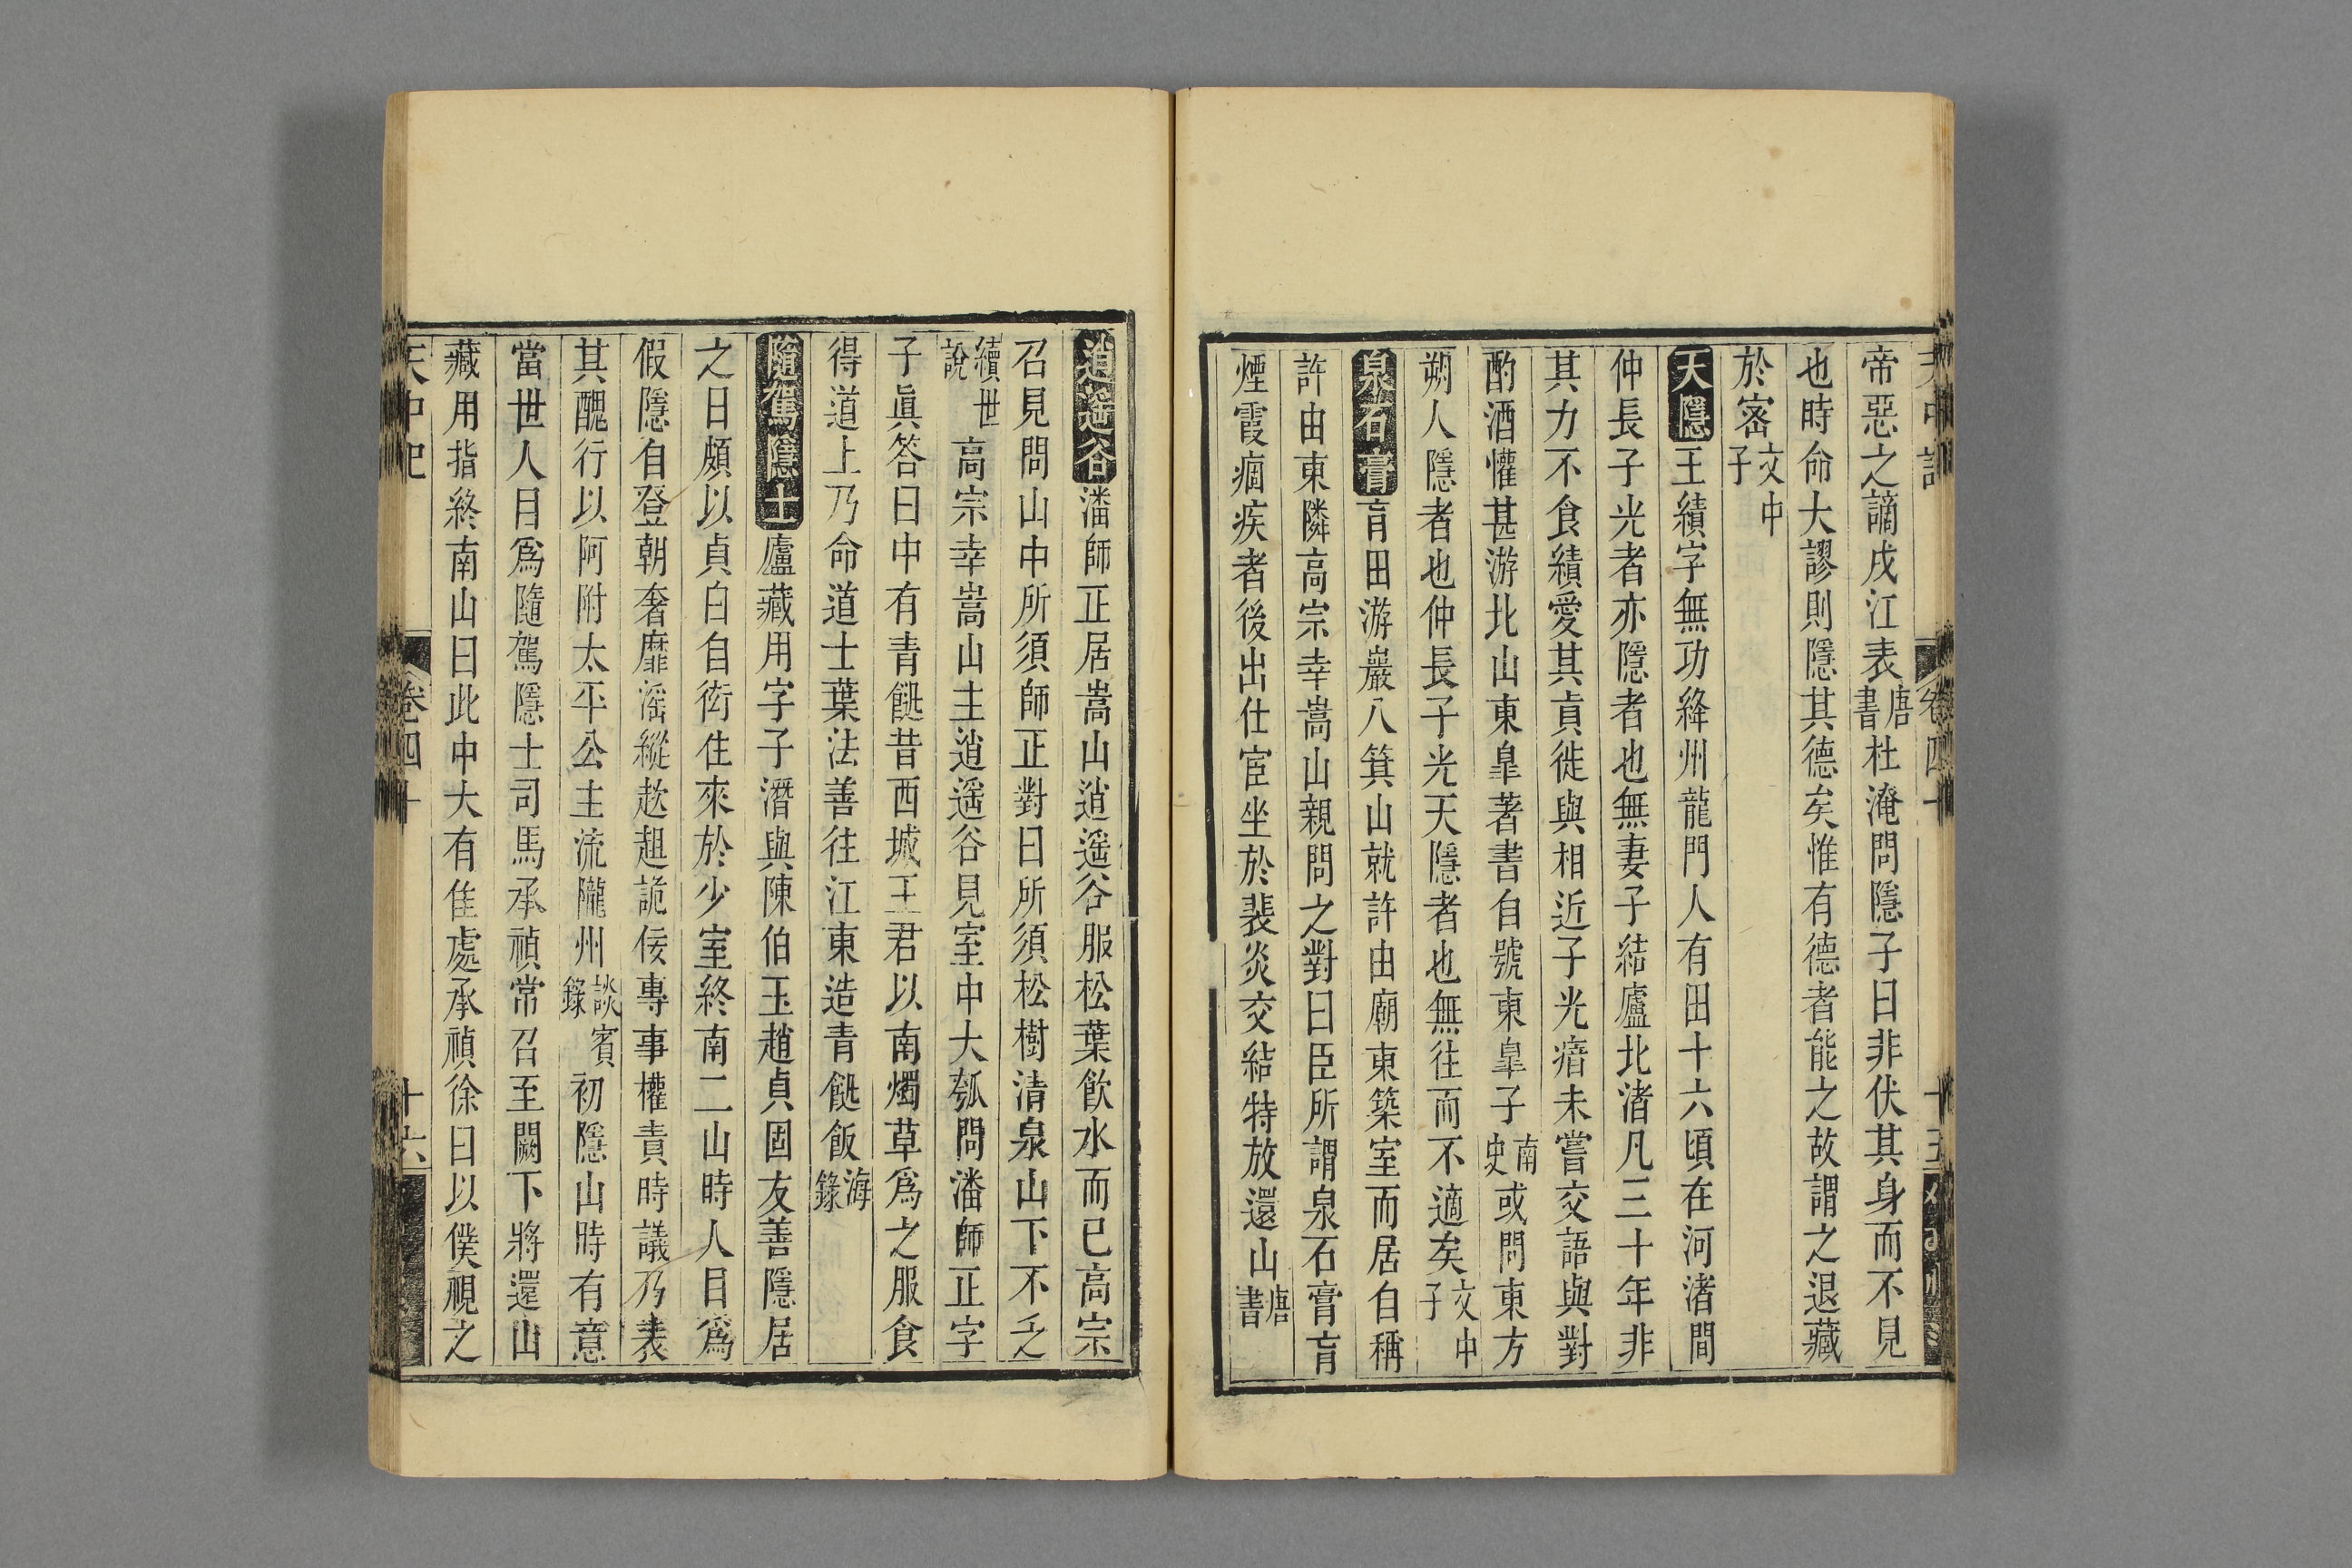 帝惡之謫戍江表唐書杜淹問隱子曰非伏其身而不見
也時命大謬則隱其德矣惟有德者能之故謂之退藏
於宻文中子
天隱王績字無功絳州龍門人有田十六頃在河渚間
仲長子光者亦隱者也無妻子結廬北渚凡三十年非
其力不食績愛其貞徙與相近子光瘖未嘗交語與對
酌酒懽甚游北山東臯著書自號東臯子南史或問東方
朔人隱者也仲長子光天隱者也無往而不適矣文中子
泉石膏肓田游巖入箕山就許由廟東築室而居自稱
許由東隣高宗幸嵩山親問之對曰臣所謂泉石膏肓
煙霞痼疾者後出仕宦坐於裴炎交結特放還山唐書
逍遥谷潘師正居嵩山逍遥谷服松葉飲水而已高宗
召見問山中所須師正對曰所須松樹清泉山下不乏
續世說高宗幸嵩山主逍遥谷見室中大瓠問潘師正字
子眞答曰中有青䭀昔西城王君以南燭草爲之服食
得道上乃命道士葉法善往江東造青䭀飯海錄
隨駕隱士廬藏用字子潛與陳伯玉趙貞固友善隱居
之日頗以貞白自衒住來於少室終南二山時人目爲
假隱自登朝奢靡滛縱趑趄詭佞專事權責時議乃表
其醜行以阿附太平公主流隴州談賓錄初隱山時有意
當世人目爲隨駕隱士司馬承禎常召至闕下將還山
藏用指終南山曰此中大有佳處承禎徐曰以僕視之
卷四十
十六